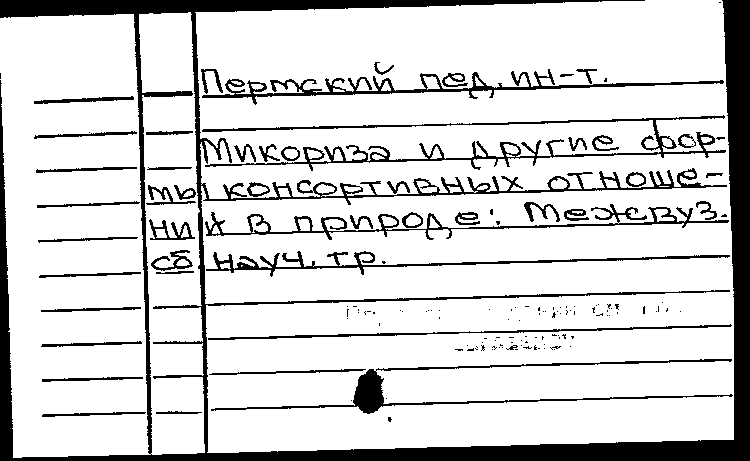 Пермский пед. ин-т.
Микориза и другие фор-
мы консортивных отноше-
ний в природе: Межвуз.
сб науч. тр.